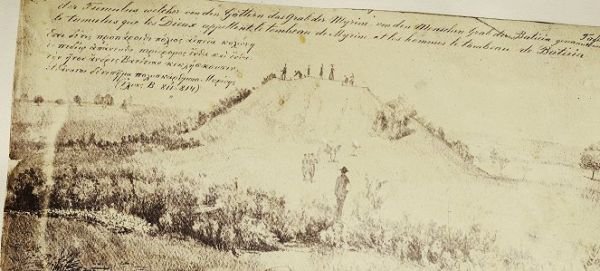 der Tumulus welcher von den Göttern das Grab der Myrina von den Menschen Grab der Batieia genannt
le tumulus que les Dieux appellent le tombeau de Myrine et les hommes le tombeau de Batieia
Ἔστι δέ τις προπάροιθε πόλιος αἰπεῖα κολώνη
ἐν πεδίῳ ἀπάνευθε περίδρομος ἔνθα καὶ ἔνθα
τὴν ἤτοι ἄνδρες Βατίειαν κικλήσκουσιν
ἀθάνατοι δέ τε σῆμα πολυσκάρθμοιο Μυρίνης
(Ἰλιας. Β. 811-814)